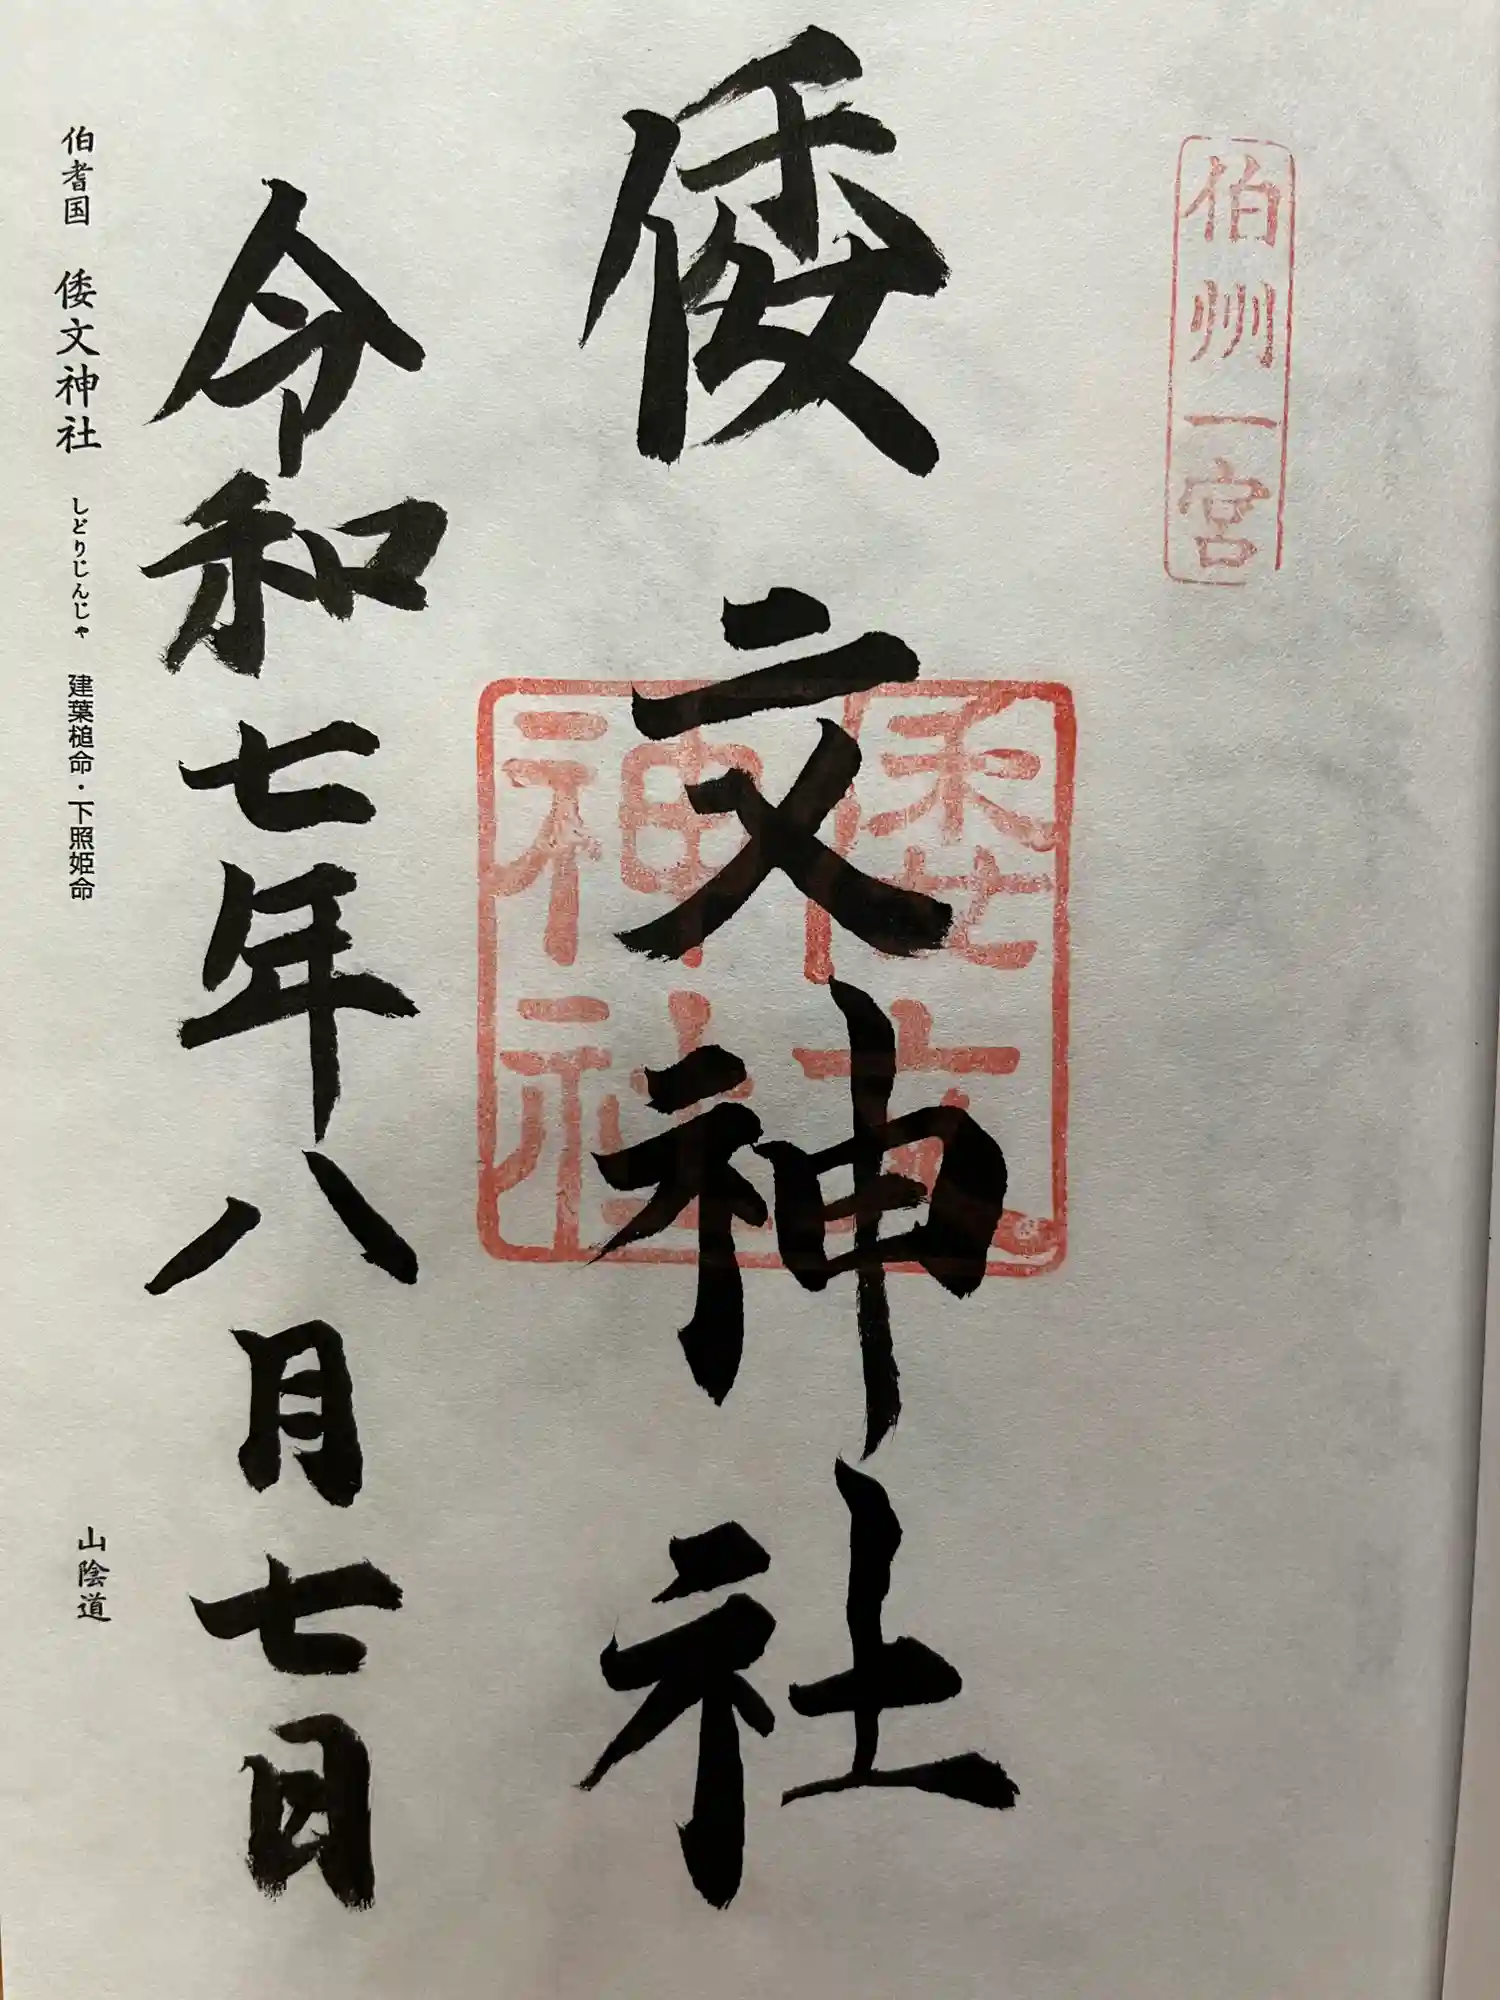 伯州一宮
倭文神社
倭文
神社
令和七年八月七日
伯耆国 倭文神社 しどりじんじゃ 建葉槌命・下照姫命 山陰道